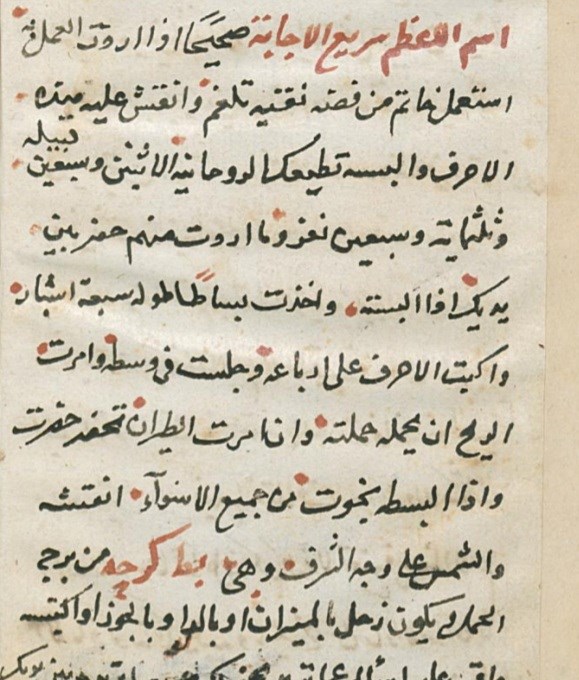 اسم الاعظم سريع الاجابة صحيحا اذا اردت العمل به
استعمل خاتم من فضه نقيه تلغم وانقش عليه هذه
الاحرف والبسه تطيعك الروحانيه الاثنين وسبعين قبيله
وثلثماية وسبعين نفر وما اردت منهم حضر بين
يديك اذا البسته واخذت بساطا طوله سبعة اشبار
واكتبت الاحرف على ارباعه وجلست في وسطه وامرت
الريح ان يحمله حملته وان امرت الطيران تحضر حضرت
واذا البسطه نجوت من جميع الاسوآء انقشه
والشمس على وجه الشرف وهي درجه من برج
الحمل ويكون زحل بالميزان او بالدلو او بالجوزا واكتبه